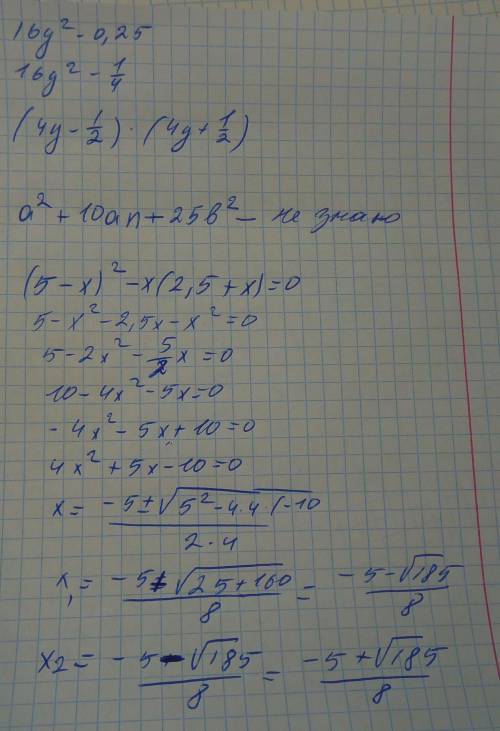 16y² - 0,25
16y² - 1/4
(4y - 1/2) · (4y + 1/2)
a² + 10an + 25b² - не знаю
(5 - x)² - x(2,5 + x) = 0
5 - x² - 2,5x - x² = 0
5 - 2x² - 5/2 x = 0
10 - 4x² - 5x = 0
- 4x² - 5x + 10 = 0
4x² + 5x - 10 = 0
x = (-5 ± √(5² - 4·4·(-10)) / (2·4)
x₁ = (-5 ± √(25 + 160)) / 8 = (-5 - √185) / 8
x2 = (-5 - √185) / 8 = (-5 + √185) / 8